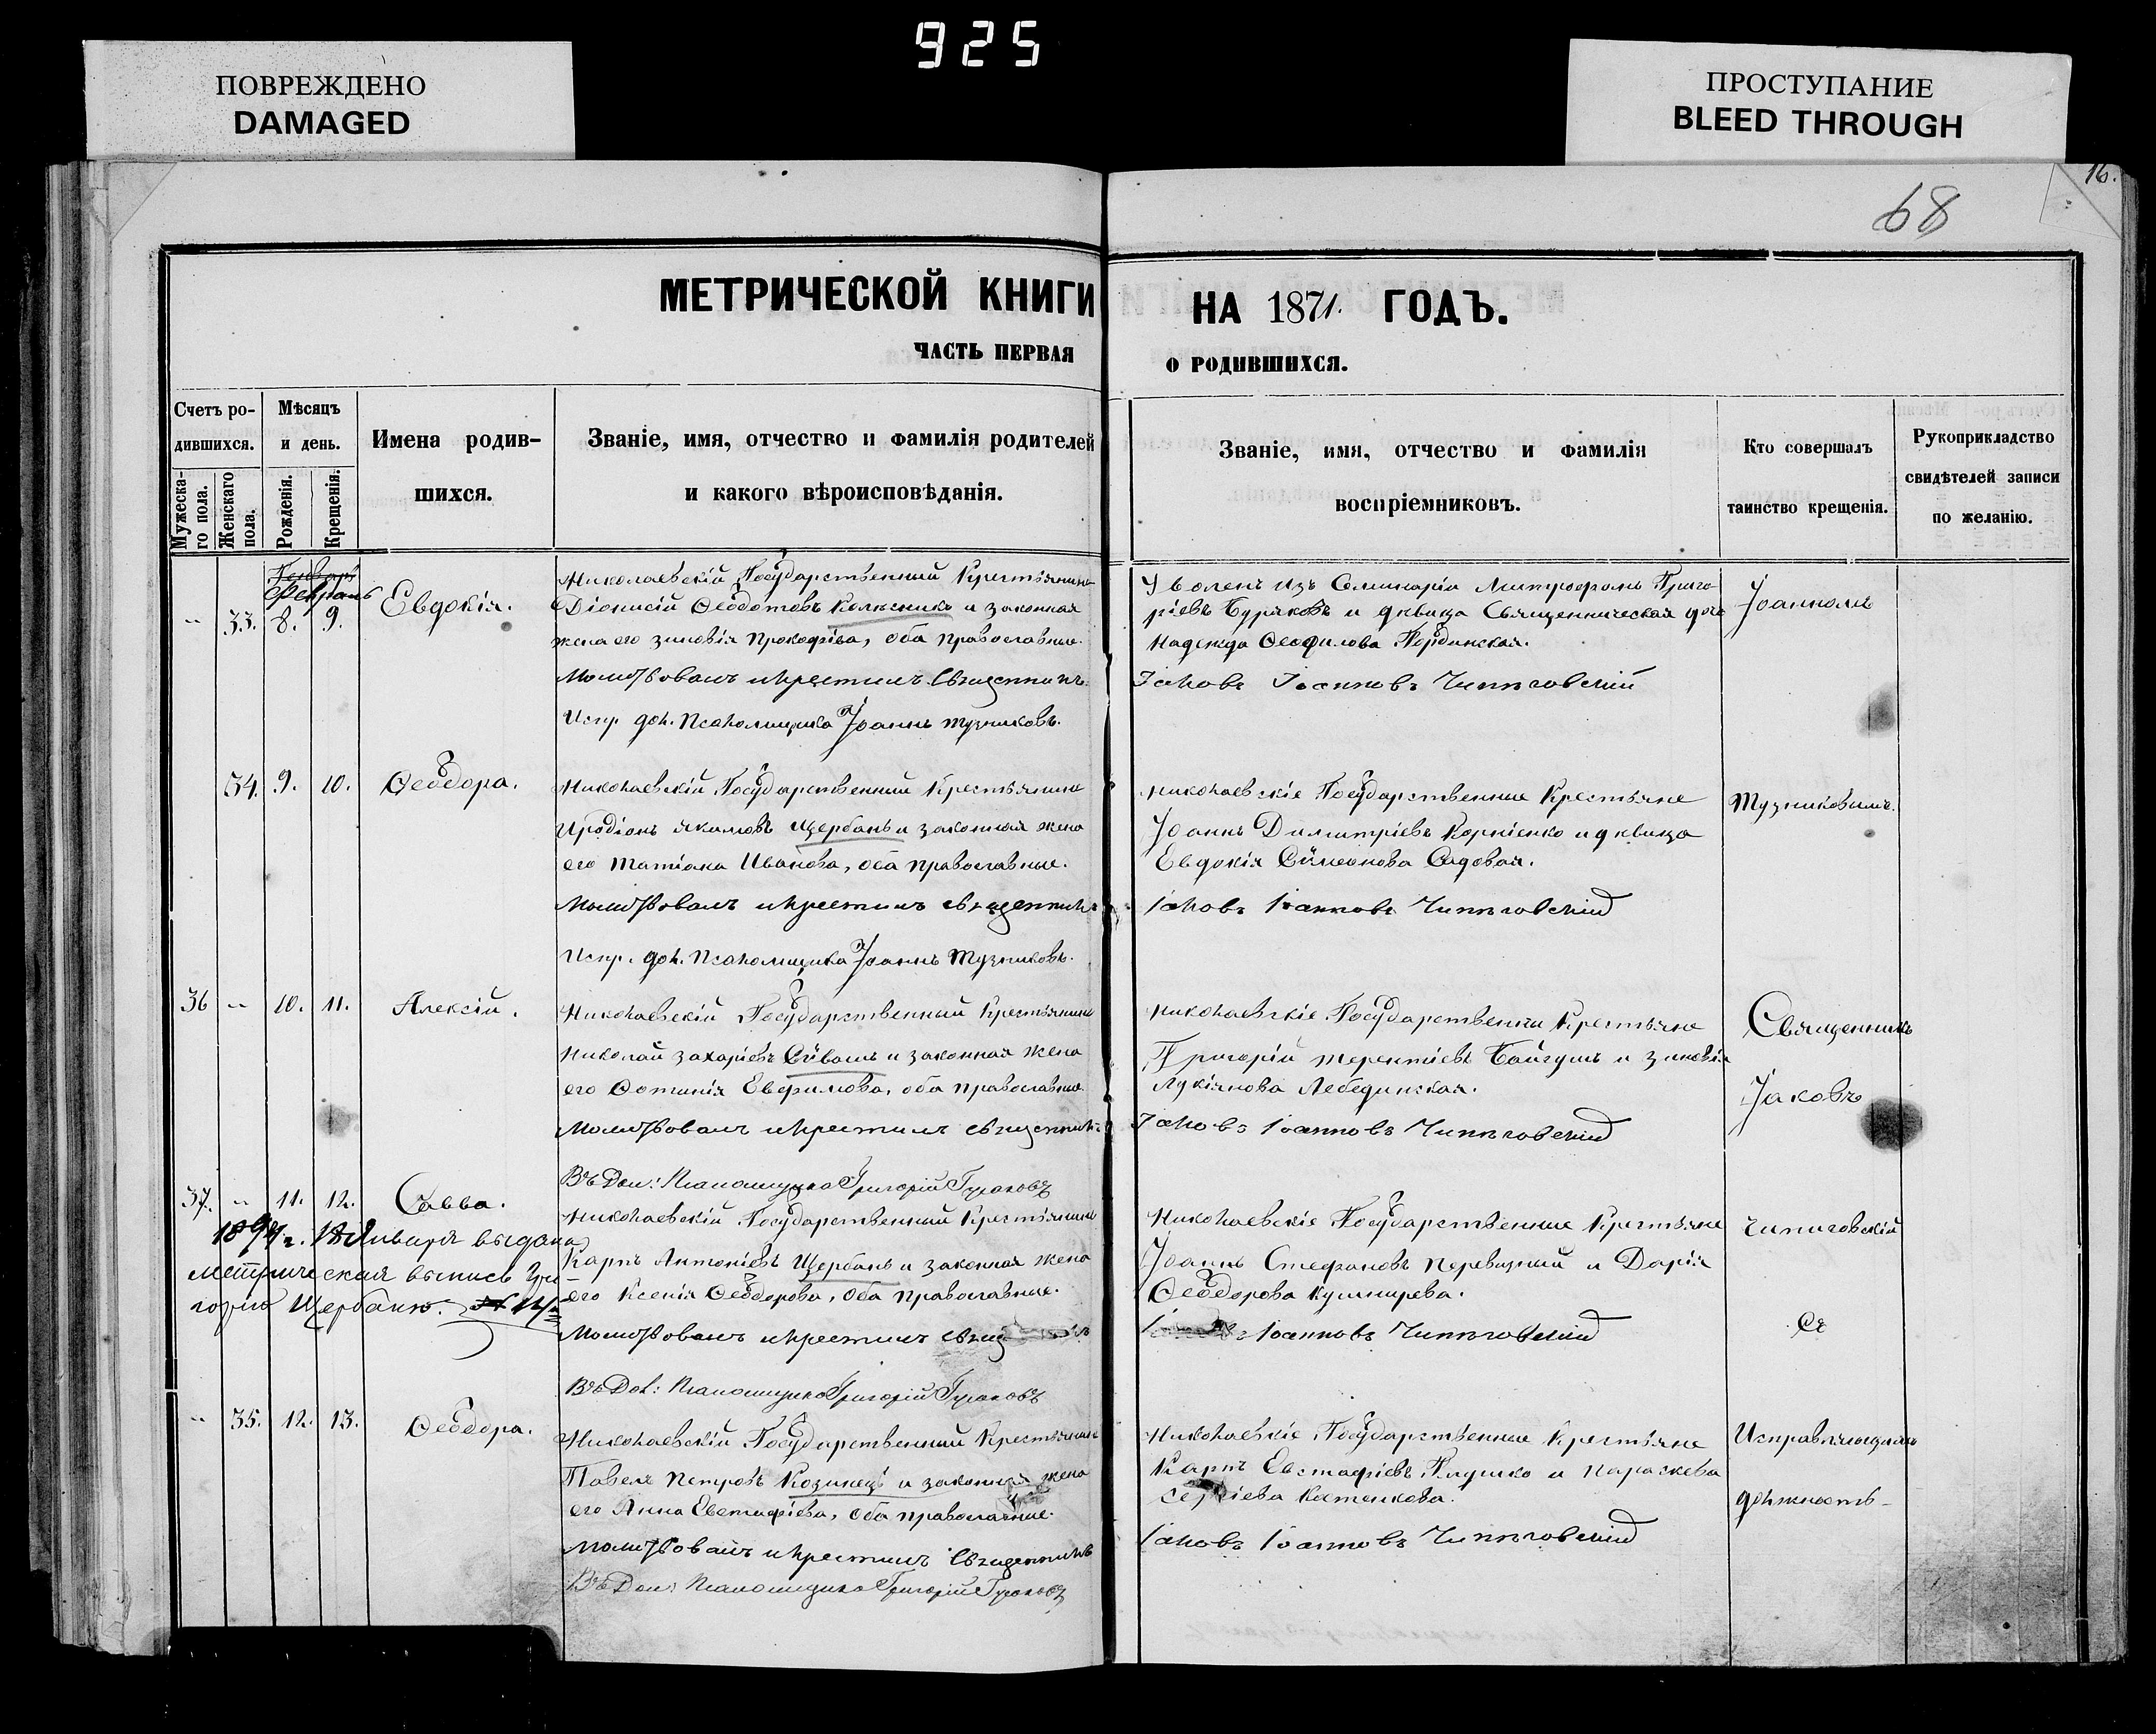 925
ПОВРЕЖДЕНО
DAMAGED
ПРОСТУПАНИЕ
BLEED THROUGH
16.
68
МЕТРИЧЕСКОЙ КНИГИ
НА 1871. ГОДЪ.
ЧАСТЬ ПЕРВАЯ
О РОДИВШИХСЯ.
Счетъ ро-
дившихся.
Мужеска-
го пола.
Женскаго
пола.
Мѣсяцъ
и день.
Рожденія.
Крещенія.
Имена родив-
шихся.
Званіе, имя, отчество и фамилія родителей
и какого вѣроисповѣданія.
Званіе, имя, отчество и фамилія
воспріемниковъ.
Кто совершалъ
таинство крещенія.
Рукоприкладство
свидѣтелей записи
по желанію.
Генварь
Февраль
33. 8. 9. Евдокія.
Николаевскій Государственный Крестьянинъ
Діонисій Ѳеодотовъ Колѣсникъ и законная
жена его Зиновія Прокофіева, оба православные.
Молитвовалъ и крестилъ Священникъ
Испр. дол. Псаломщика Іоаннъ Тузниковъ.
Уволенъ изъ Семинаріи Митрофанъ Григо-
ріевъ Буряковъ и дѣвица Священническая дочь
Надежда Ѳеофилова
Іаковъ Іоанновъ Чипиговскій
Іоанномъ
34. 9. 10. Ѳеодора.
Николаевскій Государственный Крестьянинъ
Иродіонъ Якимовъ Щербань и законная жена
его Татіана Иванова, оба православные.
Молитвовалъ и крестилъ священникъ
Испр. дол. Псаломщика Іоаннъ Тузниковъ.
Николаевскіе Государственные Крестьяне
Іоаннъ Димитріевъ Корніенко и дѣвица
Евдокія Сѵмеонова Садовая.
Іаковъ Іоанновъ Чипиговскій
Тузниковымъ.
36 10. 11. Алексій.
Николаевскій Государственный Крестьянинъ
Николай Захаріевъ Сѵвашъ и законная жена
его Фотинія Евфимова, оба православные.
Молитвовалъ и крестилъ священникъ
Въ Дол: Псаломщика Григорій Гусаковъ
Николаевскіе Государственны Крестьяне
Григорій Терентіевъ Байгушъ и Зиновія
Лукіянова Лебединская.
Іаковъ Іоанновъ Чипиговскій
Священникъ
Іаковъ
37. 11. 12. Савва.
1894 г. 18 Января выдана
метрическая выпись Гри
горію Щербаню. № 14
Николаевскій Государственный Крестьянинъ
Карпъ Антоніевъ Щербань и законная жена
его Ксенія Ѳеодорова, оба православные.
Молитвовалъ и крестилъ
Въ Дол: Псаломщика Григорій Гусаковъ
Николаевскіе Государственные Крестьяне
Іоаннъ Стефановъ Перевизный и Дарія
Ѳеодорова Кушнирева.
Іоанновъ Чипиговскій
Чипиговскій
Съ
35. 12. 13. Ѳеодора.
Николаевскій Государственный Крестьянинъ
Павелъ Петровъ Козинецъ и законная жена
его Анна Евстафіева, оба православные.
Молитвовалъ и крестилъ Священникъ
Въ Дол: Псаломщика Григорій Гусаковъ
Николаевскіе Государственные Крестьяне
Карпъ Евстафіевъ и Параскева
Сергіева Костенкова.
Іаковъ Іоанновъ Чипиговскій
Исправляющимъ
должность